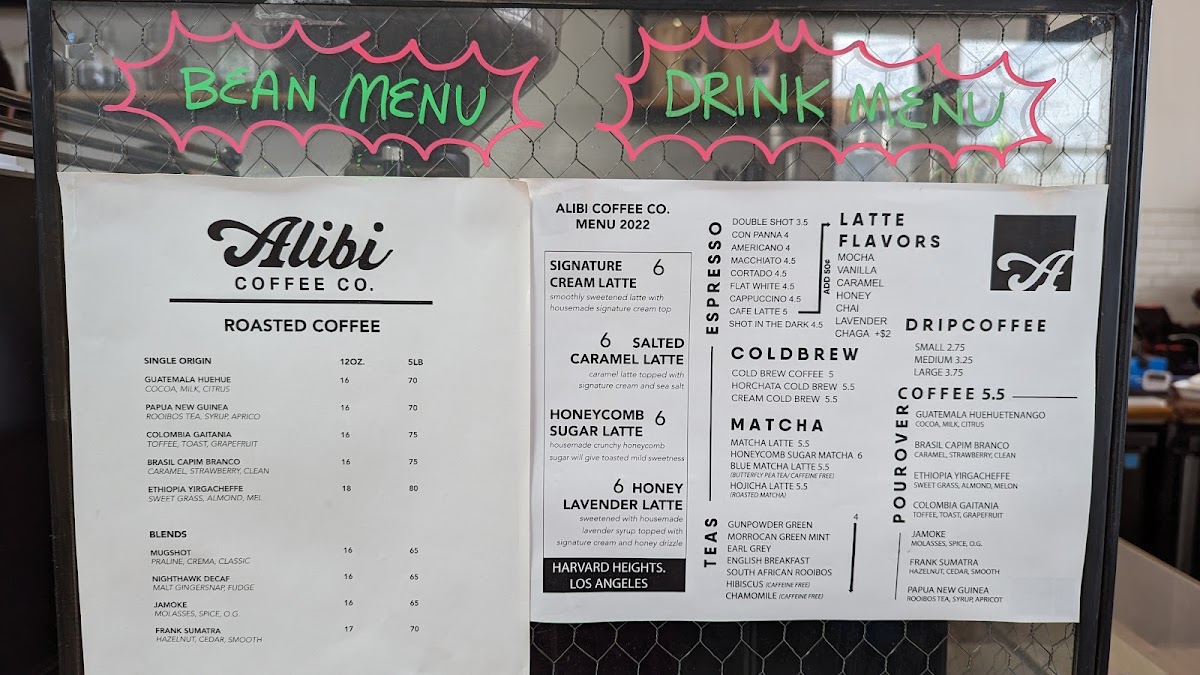 BEAN MENU
DRINK MENU
Alibi
COFFEE CO.
ROASTED COFFEE
SINGLE ORIGIN 12OZ. 5LB
GUATEMALA HUEHUE 16 70
COCOA, MILK, CITRUS
PAPUA NEW GUINEA 16 70
ROOIBOS TEA, SYRUP, APRICO
COLOMBIA GAITANIA 16 75
TOFFEE, TOAST, GRAPEFRUIT
BRASIL CAPIM BRANCO 16 75
CARAMEL, STRAWBERRY, CLEAN
ETHIOPIA YIRGACHEFFE 18 80
SWEET GRASS, ALMOND, MEL
BLENDS
MUGSHOT 16 65
PRALINE, CREMA, CLASSIC
NIGHTHAWK DECAF 16 65
MALT GINGERSNAP, FUDGE
JAMOKE 16 65
MOLASSES, SPICE, O.G.
FRANK SUMATRA 17 70
HAZELNUT, CEDAR, SMOOTH
ALIBI COFFEE CO.
MENU 2022
SIGNATURE 6
CREAM LATTE
smoothly sweetened latte with
housemade signature cream top
6 SALTED
CARAMEL LATTE
caramel latte topped with
signature cream and sea salt
HONEYCOMB 6
SUGAR LATTE
housemade crunchy honeycomb
sugar will give toasted mild sweetness
6 HONEY
LAVENDER LATTE
sweetened with housemade
lavender syrup topped with
signature cream and honey drizzle
HARVARD HEIGHTS.
LOS ANGELES
ESPRESSO
DOUBLE SHOT 3.5
CON PANNA 4
AMERICANO 4
MACCHIATO 4.5
CORTADO 4.5
FLAT WHITE 4.5
CAPPUCCINO 4.5
CAFE LATTE 5
SHOT IN THE DARK 4.5
ADD 50¢
LATTE
FLAVORS
MOCHA
VANILLA
CARAMEL
HONEY
CHAI
LAVENDER
CHAGA +$2
A
COLDBREW
COLD BREW COFFEE 5
HORCHATA COLD BREW 5.5
CREAM COLD BREW 5.5
MATCHA
MATCHA LATTE 5.5
HONEYCOMB SUGAR MATCHA 6
BLUE MATCHA LATTE 5.5
(BUTTERFLY PEA TEA/ CAFFEINE FREE)
HOJICHA LATTE 5.5
(ROASTED MATCHA)
TEAS
GUNPOWDER GREEN
MORROCAN GREEN MINT
EARL GREY
ENGLISH BREAKFAST
SOUTH AFRICAN ROOIBOS
HIBISCUS (CAFFEINE FREE)
CHAMOMILE (CAFFEINE FREE)
4
DRIPCOFFEE
SMALL 2.75
MEDIUM 3.25
LARGE 3.75
COFFEE 5.5
POUROVER
GUATEMALA HUEHUETENANGO
COCOA, MILK, CITRUS
BRASIL CAPIM BRANCO
CARAMEL, STRAWBERRY, CLEAN
ETHIOPIA YIRGACHEFFE
SWEET GRASS, ALMOND, MELON
COLOMBIA GAITANIA
TOFFEE, TOAST, GRAPEFRUIT
JAMOKE
MOLASSES, SPICE, O.G.
FRANK SUMATRA
HAZELNUT, CEDAR, SMOOTH
PAPUA NEW GUINEA
ROOIBOS TEA, SYRUP, APRICOT